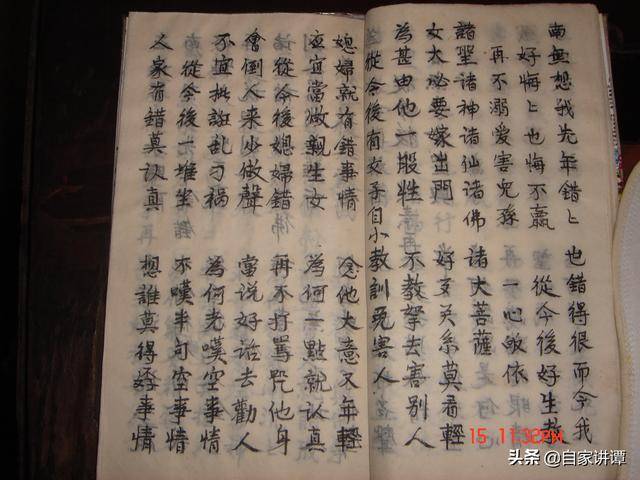 南無想我先年錯〻 也錯得很而今我
好悔〻也悔不贏 從今後好生教
再不溺爱害兒孫 一心皈依
諸聖諸神諸仙諸佛 諸大菩薩
女大必要嫁出門 好歹关系莫看輕
為甚由他一股性 不教拏去害别人
從今後有女子自小教訓免害人
媳婦就有錯事情 念他大意又年輕
亟宜當做親生女 為何一點就认真
從今後媳婦錯 再不打罵咒他身
會倒人来少做聲 當说好话去勸人
不宜批誑乱刁祸 為何老嘆空事情
從今後一堆坐 不嘆半句空事情
人家有錯莫认真 想誰莫得好事情
15 11:32PM
头条 @自家讲谭